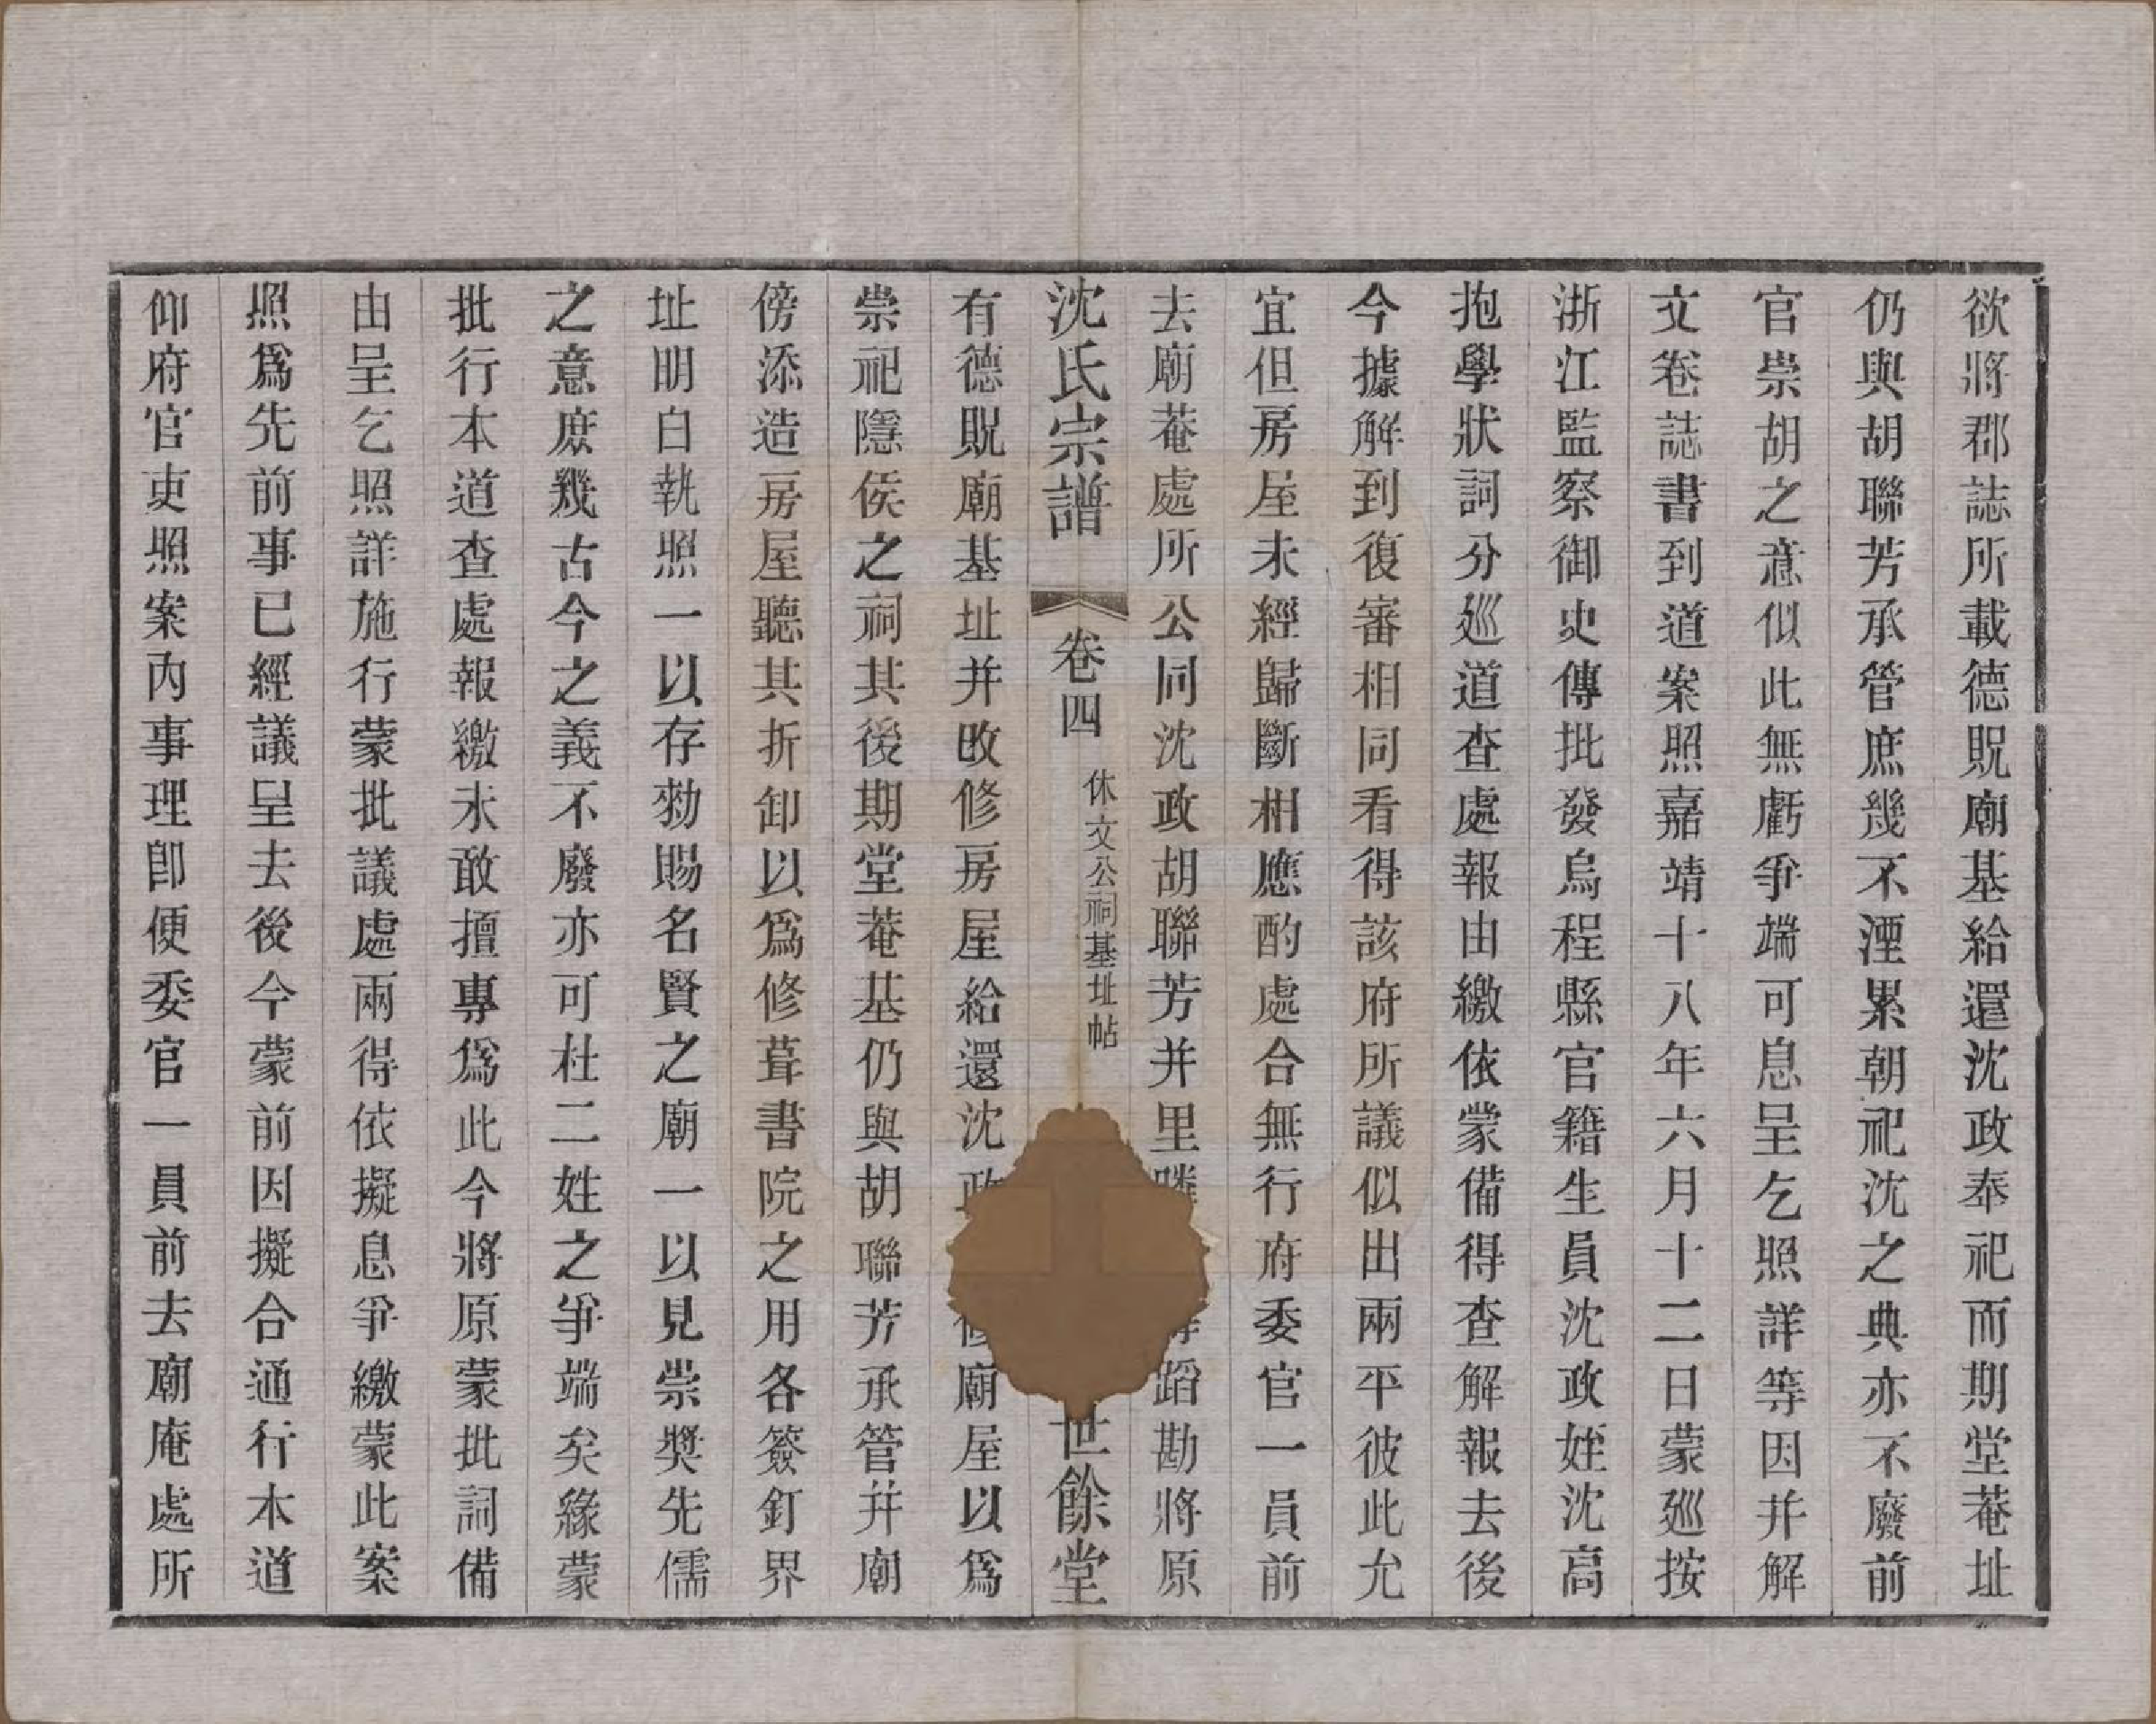 欲將郡誌所載德貺廟基給還沈政奉祀而期堂菴址
仍與胡聯芳承管庶幾不湮累朝祀沈之典亦不廢前
官崇胡之意似此無虧爭端可息呈乞照詳等因并解
文卷誌書到道案照嘉靖十八年六月十二日蒙廵按
浙江監察御史傳批發烏程縣官籍生員沈政姪沈高
抱學狀詞分廵道查處報由繳依蒙備得查解報去後
今據解到復審相同看得該府所議似出兩平彼此允
宜但房屋未經歸斷相應酌處合無行府委官一員前
去廟菴處所公同沈政胡聯芳并里蹈勘將原
沈氏宗譜 卷四 休文公祠基址帖 世餘堂
有德貺廟基址并改修房屋給還沈廟屋以爲
崇祀隱侯之祠其後期堂菴基仍與胡聯芳承管并廟
傍添造房屋聽其折卸以爲修葺書院之用各簽釘界
址明白執照一以存勑賜名賢之廟一以見崇獎先儒
之意庶幾古今之義不廢亦可杜二姓之爭端矣緣蒙
批行本道查處報繳未敢擅專爲此今將原蒙批詞備
由呈乞照詳施行蒙批議處兩得依擬息爭繳蒙此案
照爲先前事已經議呈去後今蒙前因擬合通行本道
仰府官吏照案內事理卽便委官一員前去廟庵處所